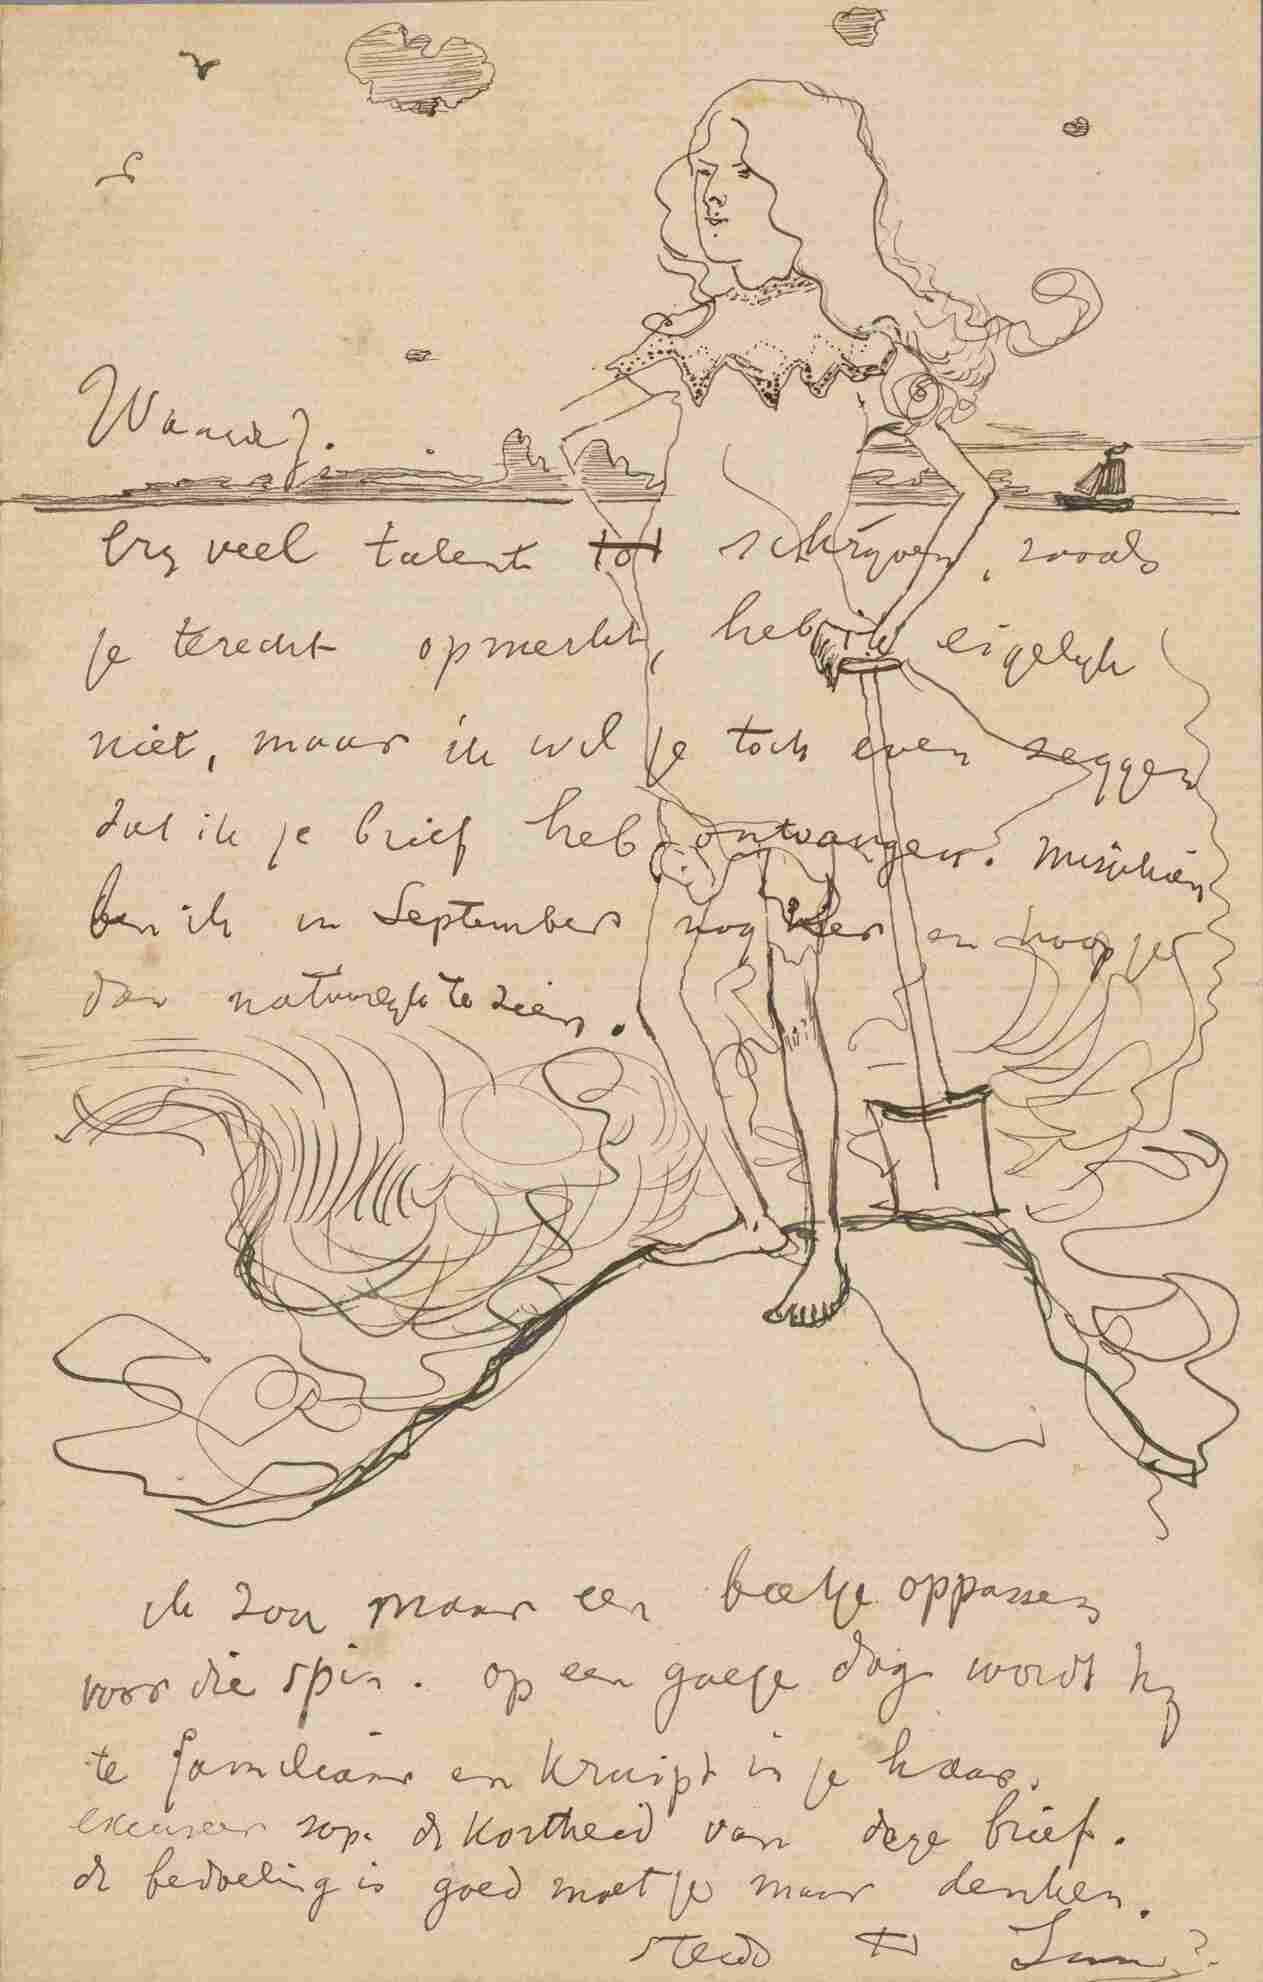 erg veel talent tot schrijven, zooals
je terecht opmerkt, heb ik eigelijk
niet, maar ik wil je toch even zeggen
dat ik je brief heb ontvangen. Misschien
ben ik in September nog hier en hoop je
dan natuurlijk te zien.
ik zou maar een beetje oppassen
voor die spin. op een goeje dag wordt hij
te familiaar en kruipt in je haar.
excuseer sop. de kortheid van deze brief.
de bedoeling is goed moet je maar denken.
steeds